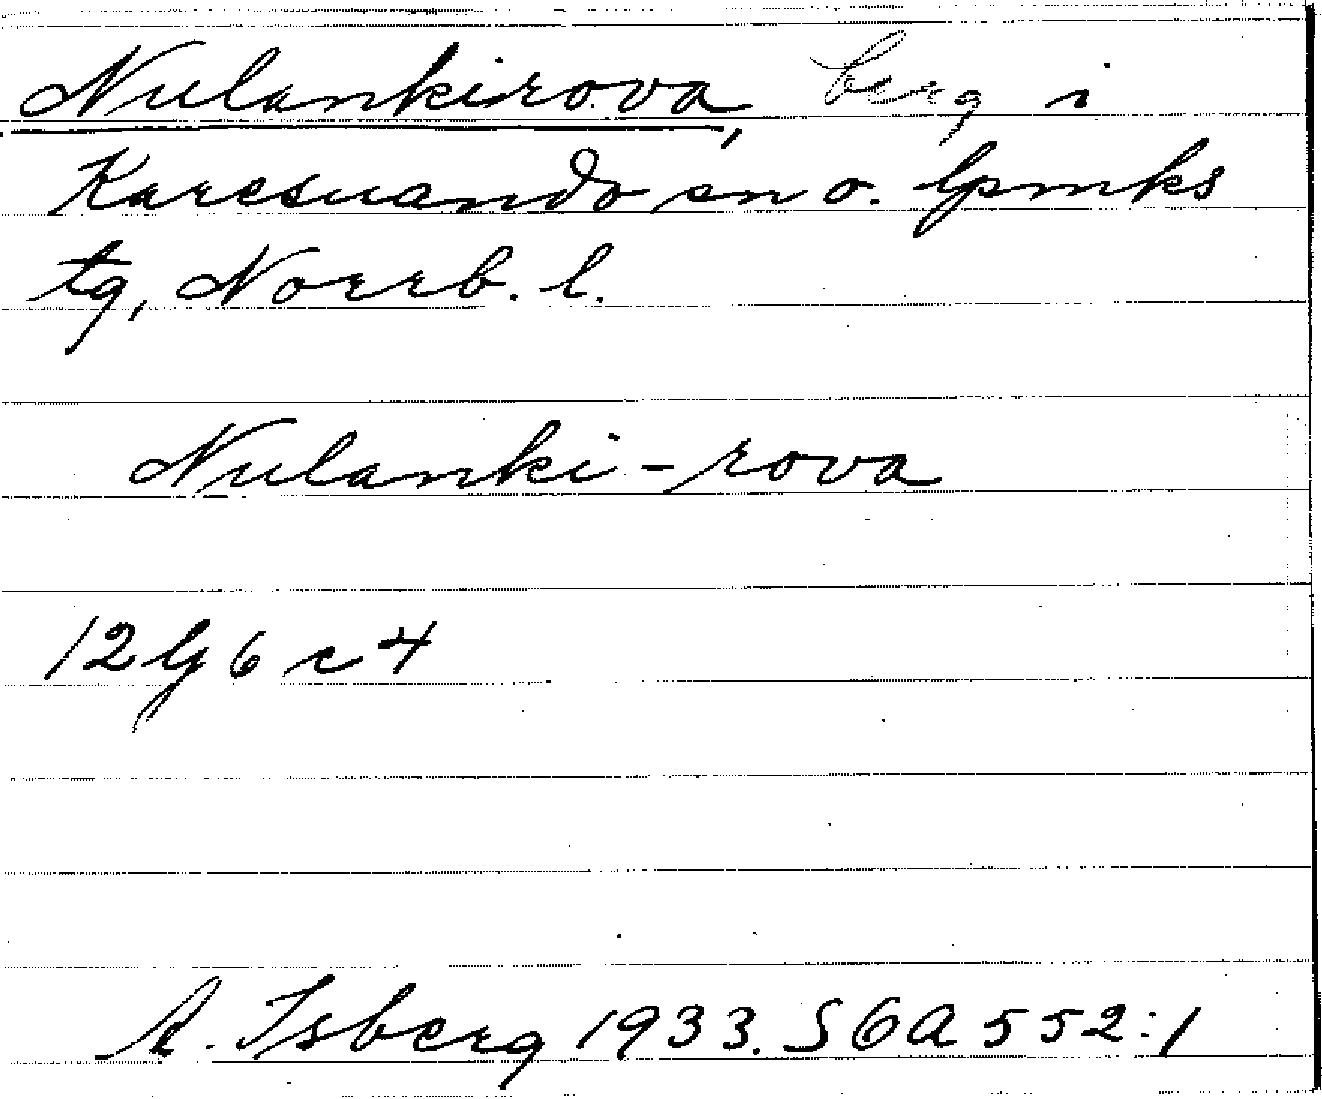 Nulankirova, berg i
Karesuando sn o. lpmks
tg, Norrb. l.
Nulanki-rova
12 lg 6 c 4
A. Isberg 1933. SOA 552:1